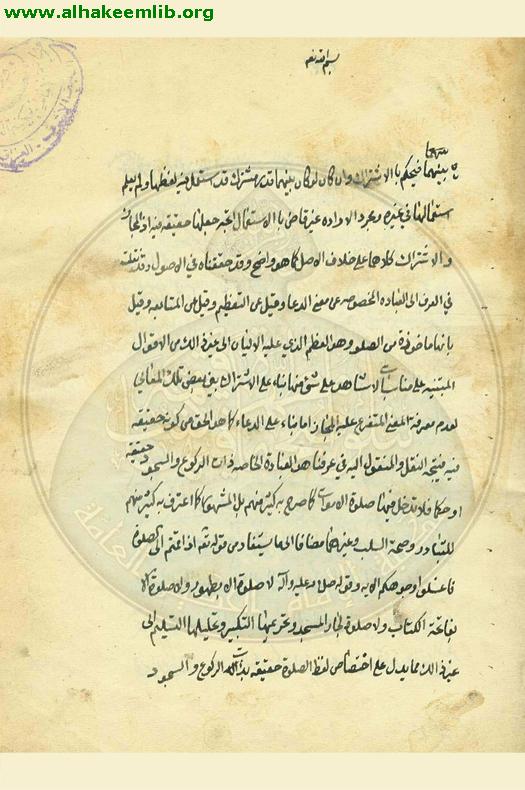 www.alhakeemlib.org
بسم الله تعه
بينهما فيحكم بالاشتراك وان كان لو كان بينهما قدر مشترك قد استعمل فيه لفظها ولم يعلم
استعمالها في غيره ومجرد الاراده غير قاض بالاستعمال اتجه جعلها حقيقه فيه اذ المجاز
والاشتراك كلاهما على خلاف الاصل كما هو واضح وقد حققناه في الاصول وقد نقلت
في العرف الى العباده المخصوصه عن معنى الدعا وقيل عن التعظيم وقيل من المتابعه وقيل
بانها ماخوذة من الصلو وهو العظم الذي عليه الاليتان الى غير ذلك من الاقوال
المبتنيه على مناسبات لا شاهد على شئ منها بناء على الاشتراك بين بعض تلك المعاني
لعدم معرفة المعنى المتفرع عليه المجاز اما بناء على الدعاء كما هو الحق من كونه حقيقه
فيه فيتجه النقل والمنقول اليه في عرفنا هو العبادة الخاصه ذات الركوع والسجود حقيقه
او حكما فلا تدخل فيها صلوة الاموات كما صرح به كثير منهم بل المشهور كما اعترف به كثير منهم
للتبادر وصحة السلب وغيرهما مضافا الى ما يستفاد من قوله تعه اذا قمتم الى الصلوة
فاغسلوا وجوهكم الايه وقوله صلى الله عليه وآله لا صلوة الا بطهور ولا صلوة الا
بفاتحة الكتاب ولا صلوة لجار المسجد وتحريمها التكبير وتحليلها التسليم الى
غير ذلك مما يدل على اختصاص لفظ الصلوة حقيقه بذات الركوع والسجود